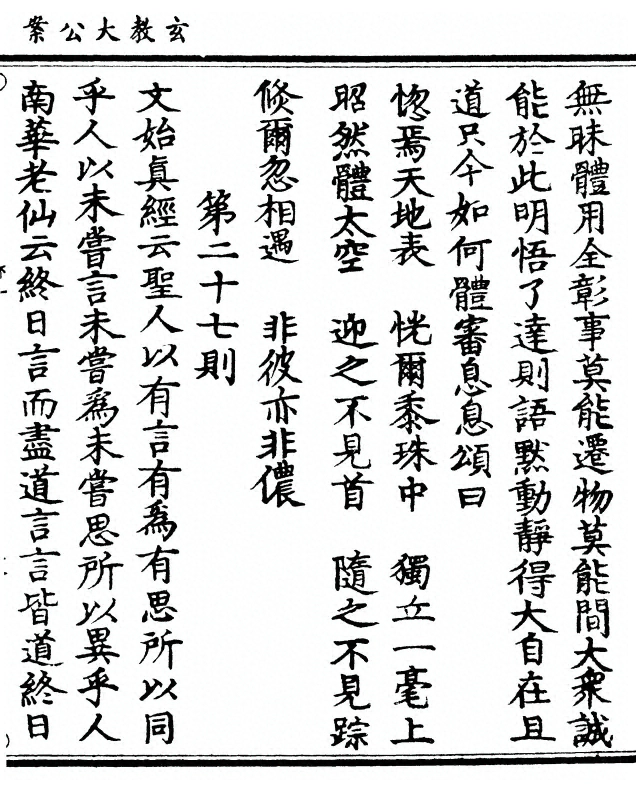 玄教大公案
無昧體用全彰事莫能遷物莫能間大衆誠
能於此明悟了達則語默動靜得大自在且
道只今如何體審息息頌曰
惚焉天地表　恍爾黍珠中　獨立一毫上
昭然體太空　迎之不見首　隨之不見踪
倐爾忽相遇　非彼亦非儂
第二十七則
文始眞經云聖人以有言有爲有思所以同
乎人以未嘗言未嘗爲未嘗思所以異乎人
南華老仙云終日言而盡道言言皆道終日